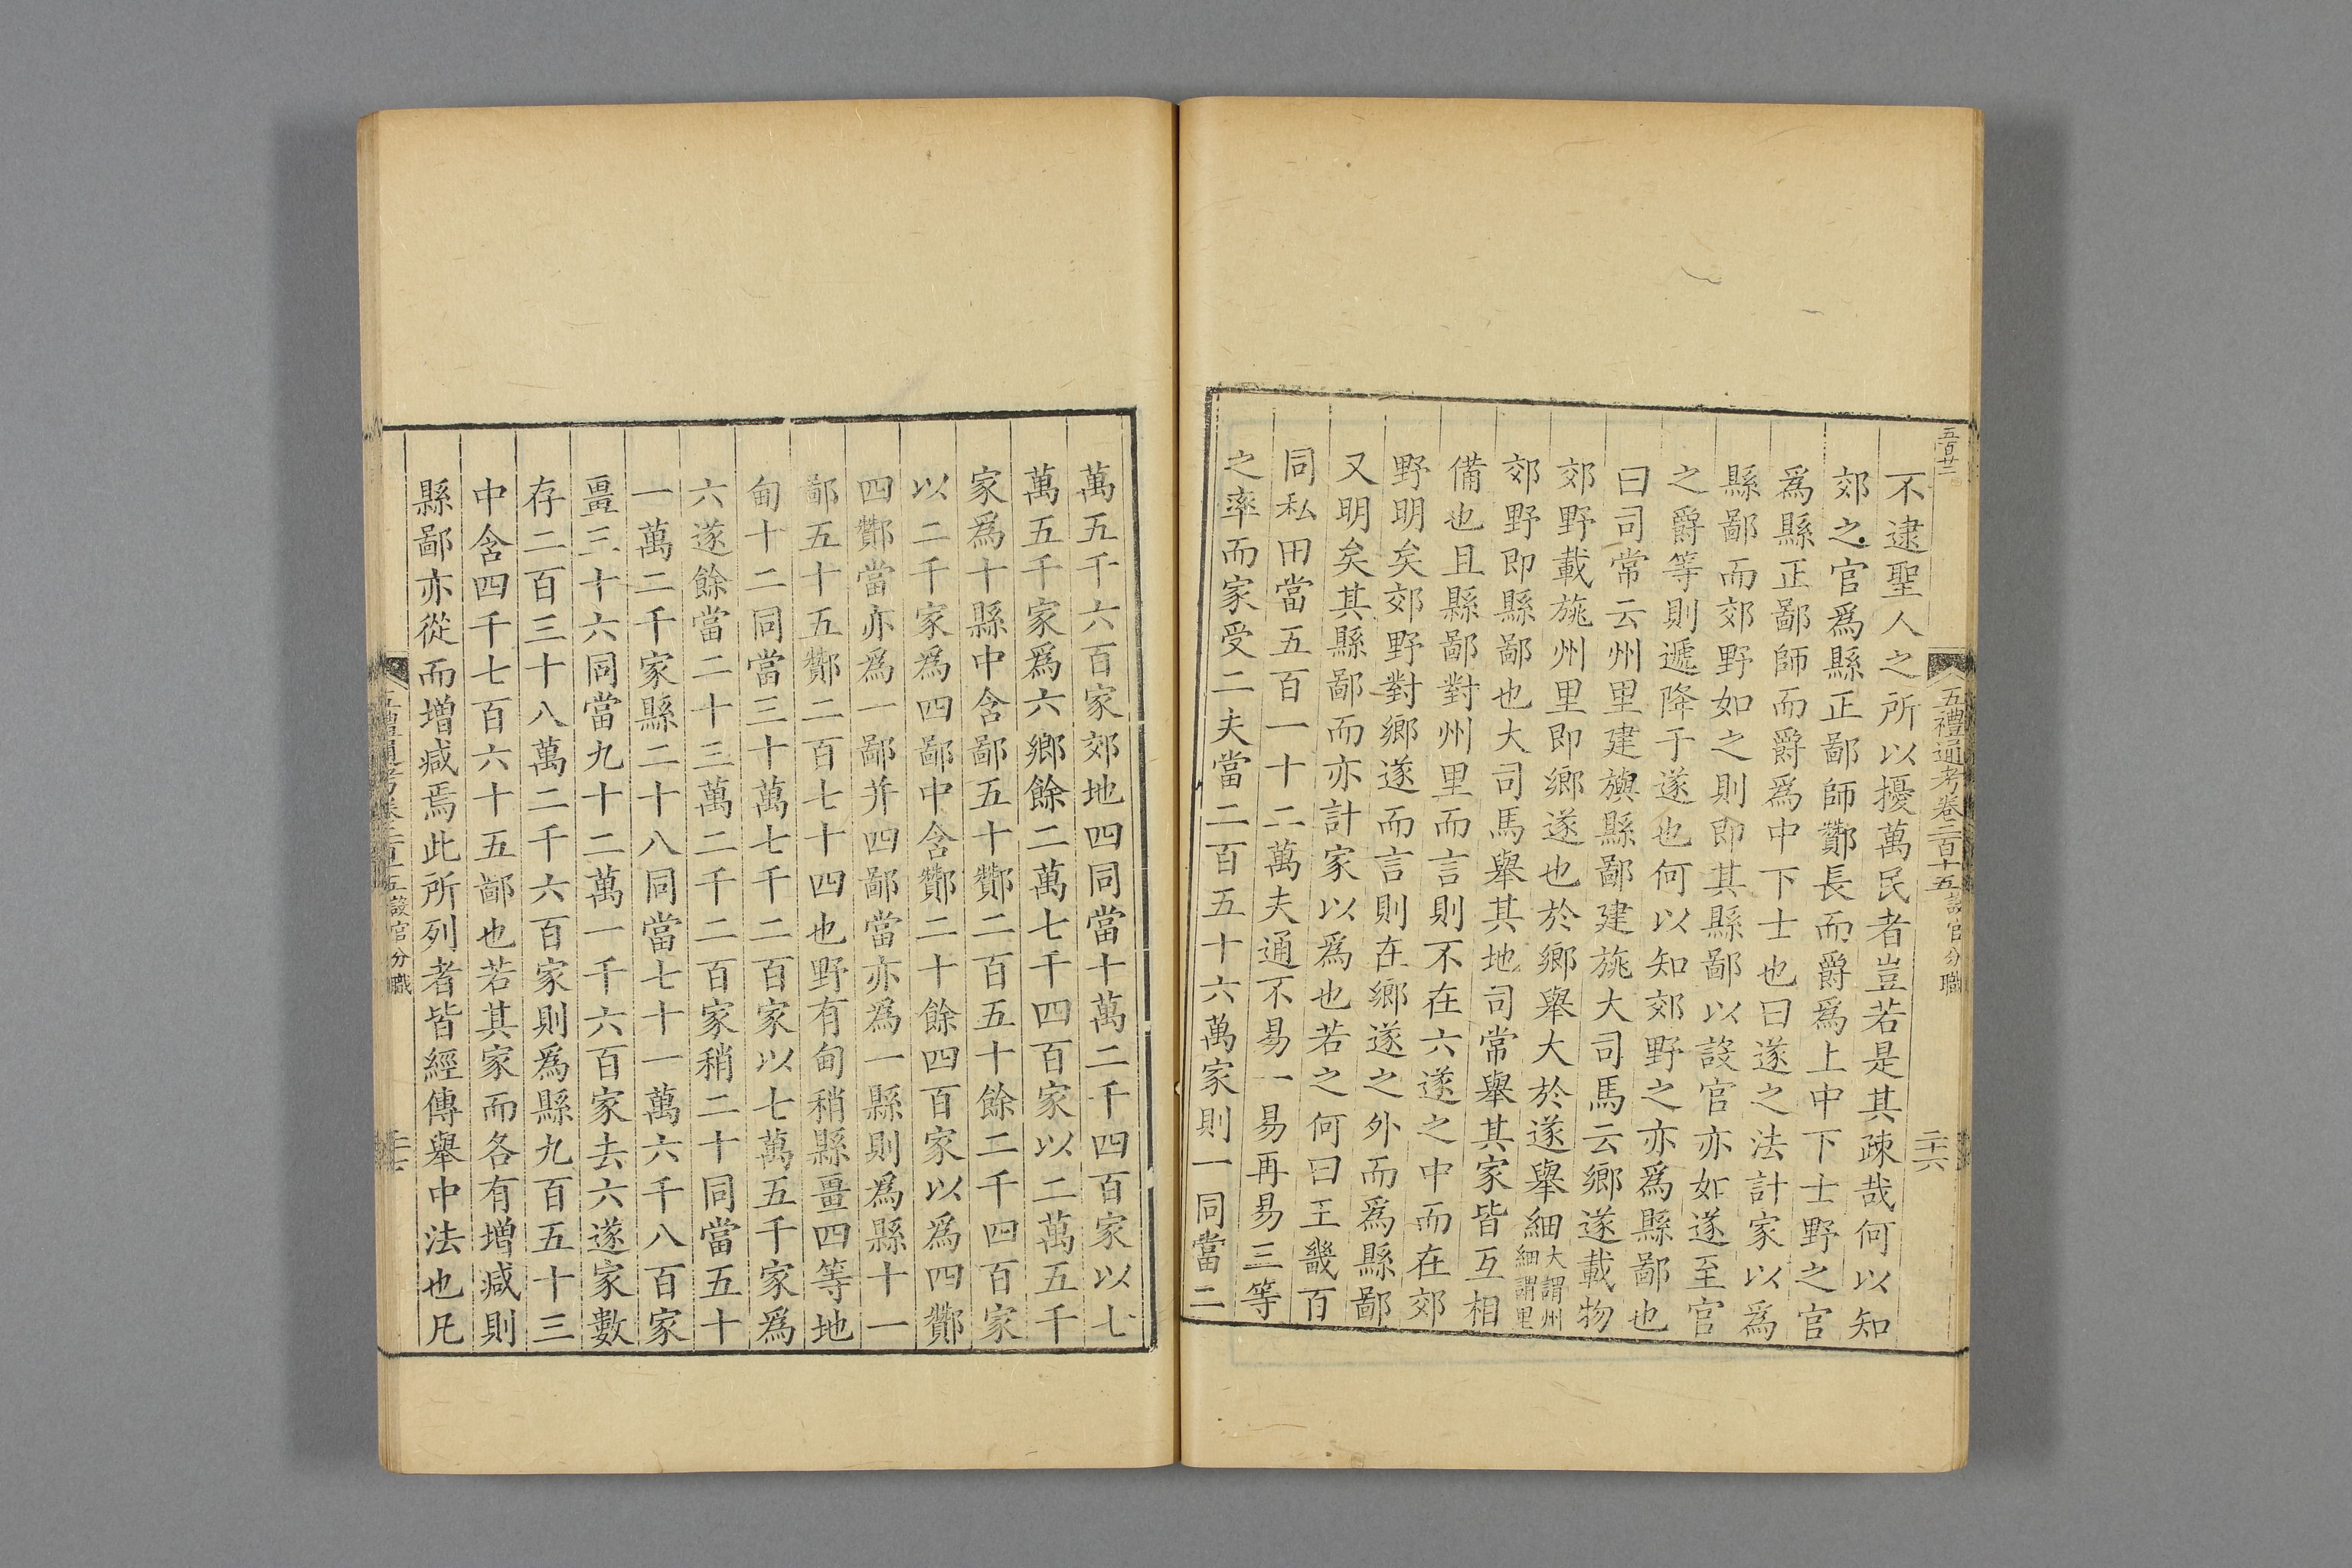 五百廿二
五禮通考卷二百十五設官分職
二十六
不逮聖人之所以擾萬民者豈若是其疎哉何以知
郊之官爲縣正鄙師酇長而爵爲上中下士野之官
爲縣正鄙師而爵爲中下士也曰遂之法計家以爲
縣鄙而郊野如之則即其縣鄙以設官亦如遂至官
之爵等則遞降于遂也何以知郊野之亦爲縣鄙也
曰司常云州里建旟縣鄙建旐大司馬云鄉遂載物
郊野載旐州里即鄉遂也於鄉舉大於遂舉細大謂州細謂里
郊野即縣鄙也大司馬舉其地司常舉其家皆互相
備也且縣鄙對州里而言則不在六遂之中而在郊
野明矣郊野對鄉遂而言則在鄉遂之外而爲縣鄙
又明矣其縣鄙而亦計家以爲也若之何曰王畿百
同私田當五百一十二萬夫通不易一易再易三等
之率而家受二夫當二百五十六萬家則一同當二
萬五千六百家郊地四同當十萬二千四百家以七
萬五千家爲六鄉餘二萬七千四百家以二萬五千
家爲十縣中含鄙五十酇二百五十餘二千四百家
以二千家爲四鄙中含酇二十餘四百家以爲四酇
四酇當亦爲一鄙并四鄙當亦爲一縣則爲縣十一
鄙五十五酇二百七十四也野有甸稍縣畺四等地
甸十二同當三十萬七千二百家以七萬五千家爲
六遂餘當二十三萬二千二百家稍二十同當五十
一萬二千家縣二十八同當七十一萬六千八百家
畺三十六同當九十二萬一千六百家去六遂家數
存二百三十八萬二千六百家則爲縣九百五十三
中含四千七百六十五鄙也若其家而各有增減則
縣鄙亦從而增減焉此所列者皆經傳舉中法也凡
設官分職